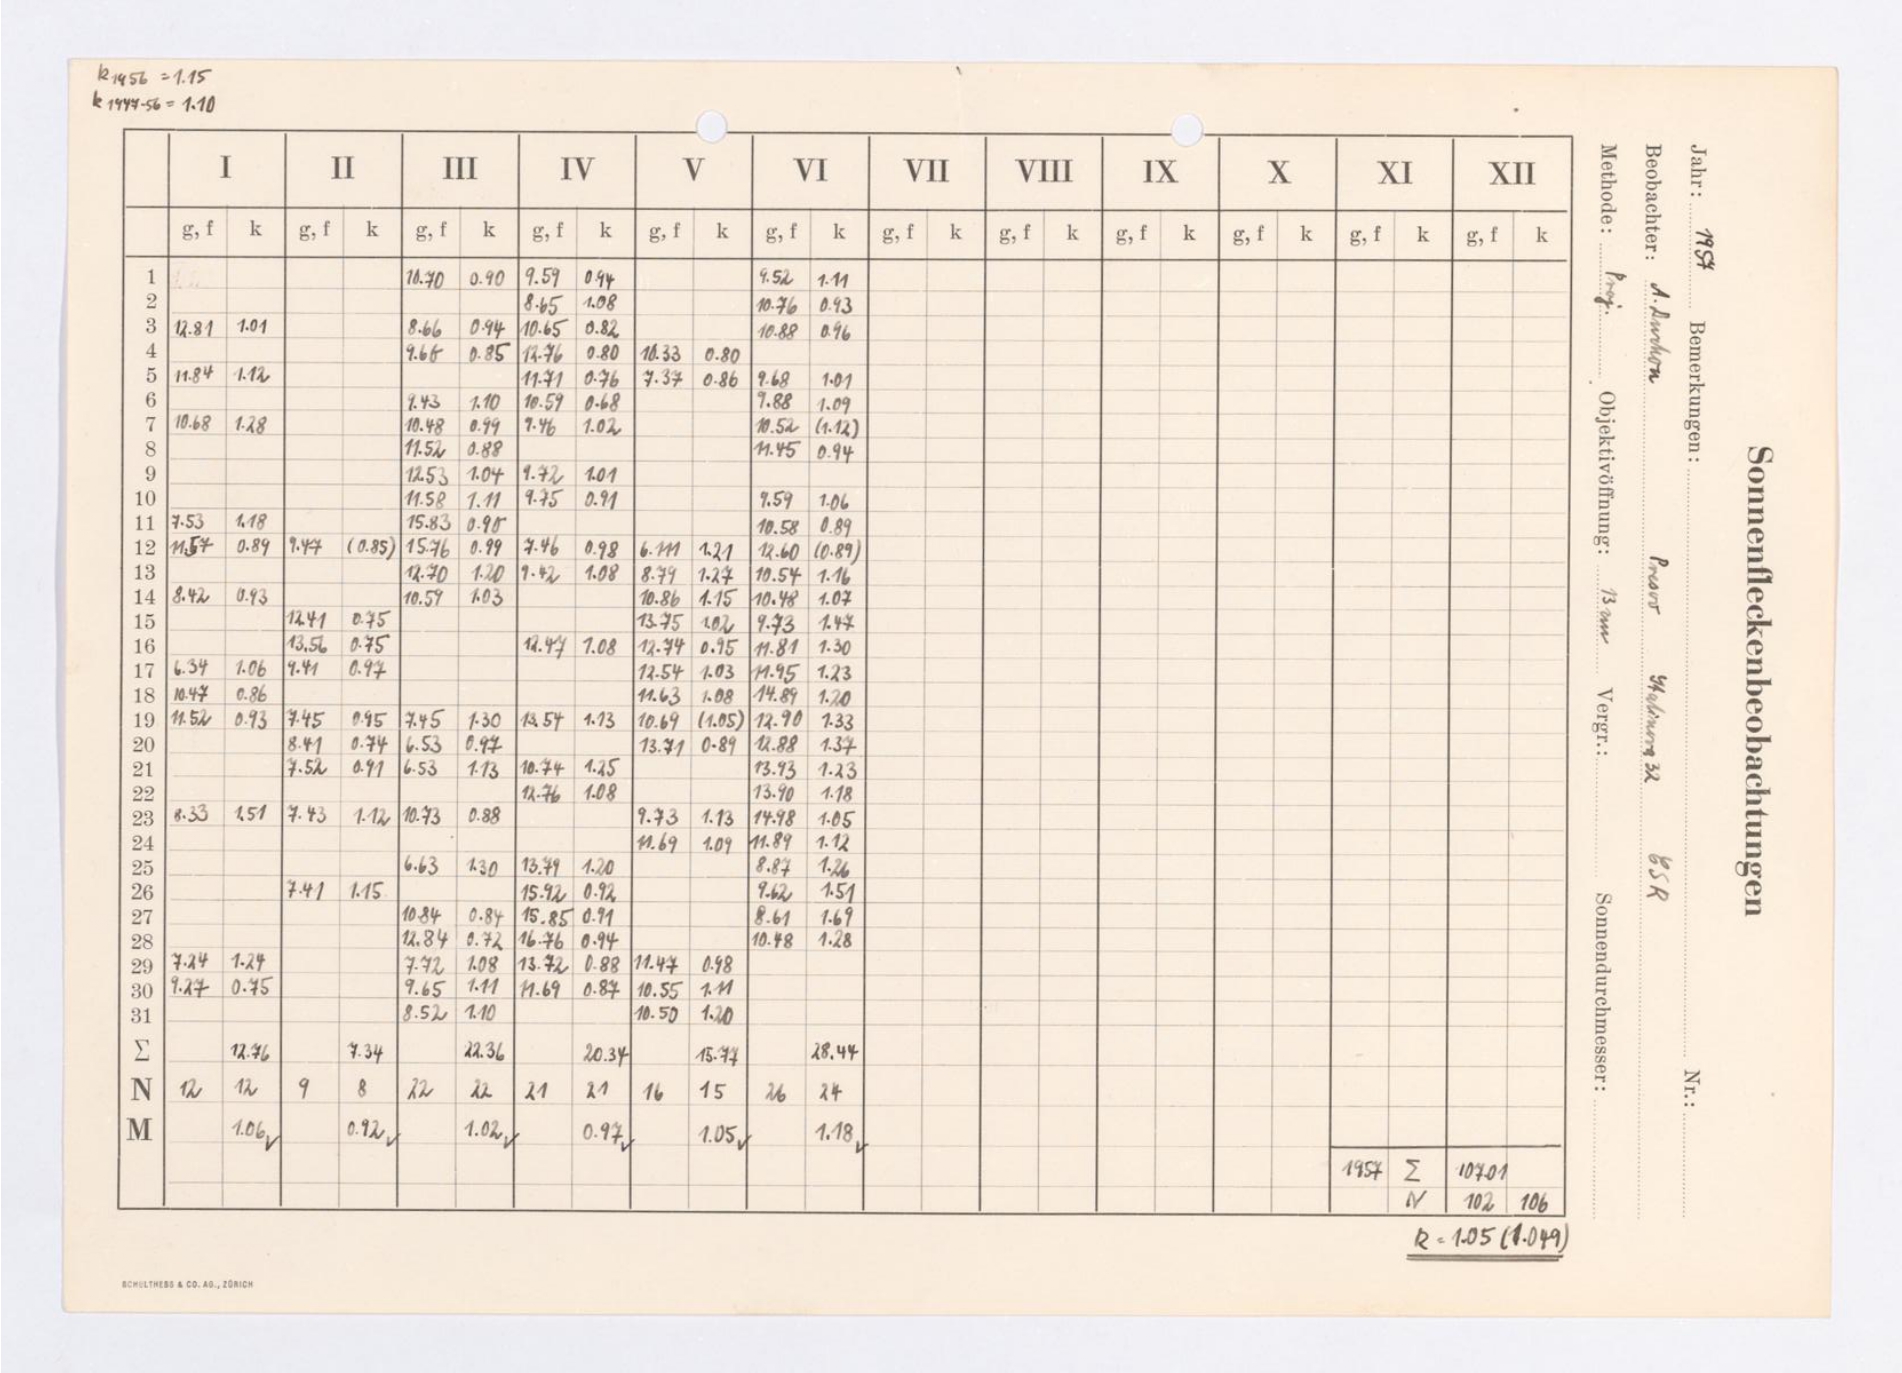 k 1956 = 1.15
k 1947-56 = 1.10
Sonnenfleckenbeobachtungen
Jahr: 1957 Bemerkungen: Nr.:
Beobachter: Presov 32 ČSR
Methode: Proj. Objektivöffnung: Vergr.: Sonnendurchmesser:
I II III IV V VI VII VIII IX X XI XII
g, f k g, f k g, f k g, f k g, f k g, f k g, f k g, f k g, f k g, f k g, f k g, f k
1 10.70 0.90 9.59 0.94 9.52 1.11
2 8.65 1.08 10.76 0.93
3 12.81 1.01 8.66 0.94 10.65 0.82 10.88 0.96
4 9.65 0.85 12.76 0.80 10.33 0.80
5 11.84 1.12 11.71 0.76 7.37 0.86 9.68 1.01
6 9.43 1.10 10.59 0.68 9.88 1.09
7 10.68 1.28 10.48 0.99 9.46 1.02 10.52 (1.12)
8 11.52 0.88 11.45 0.94
9 12.53 1.04 9.72 1.01
10 11.58 1.11 9.75 0.91 9.59 1.06
11 7.53 1.18 15.83 0.95 10.58 0.89
12 11.57 0.89 9.47 (0.85) 15.76 0.99 7.46 0.98 6.111 1.21 12.60 (0.89)
13 12.70 1.20 9.42 1.08 8.79 1.27 10.54 1.16
14 8.42 0.93 10.59 1.03 10.86 1.15 10.48 1.07
15 12.41 0.75 13.75 1.02 9.73 1.47
16 13.56 0.75 12.47 1.08 12.74 0.95 11.81 1.30
17 6.34 1.06 9.41 0.97 12.54 1.03 11.95 1.23
18 10.47 0.86 11.63 1.08 14.89 1.20
19 11.52 0.93 7.45 0.95 7.45 1.30 13.54 1.13 10.69 (1.05) 12.90 1.33
20 8.41 0.74 6.53 0.97 13.71 0.89 12.88 1.37
21 7.52 0.91 6.53 1.13 10.74 1.25 13.93 1.23
22 12.76 1.08 13.90 1.18
23 8.33 1.51 7.43 1.12 10.73 0.88 9.73 1.13 14.98 1.05
24 11.69 1.09 11.89 1.12
25 6.63 1.30 13.79 1.20 8.87 1.26
26 7.41 1.15 15.92 0.92 9.62 1.51
27 10.84 0.84 15.85 0.91 8.61 1.69
28 12.84 0.72 16.76 0.94 10.48 1.28
29 7.24 1.24 7.72 1.08 13.72 0.88 11.47 0.98
30 9.27 0.75 9.65 1.11 11.69 0.87 10.55 1.11
31 8.52 1.10 10.50 1.20
Σ 12.76 7.34 22.36 20.34 15.77 28.44
N 12 12 9 8 22 22 21 21 16 15 26 24
M 1.06 0.92 1.02 0.97 1.05 1.18
1957 Σ 107.01
N 102 106
k = 1.05 (1.049)
SCHULTHESS & CO. AG., ZÜRICH